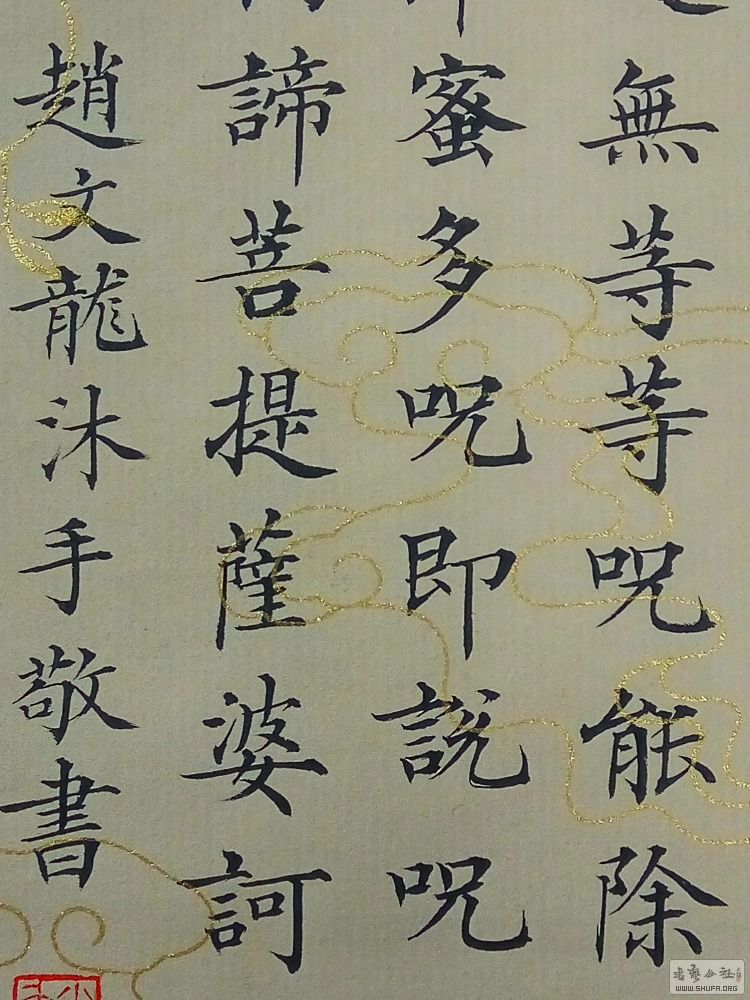 無等等呪能除
蜜多呪即說呪
諦菩提薩婆訶
趙文龍沐手敬書
書藝公社
WWW.SHUFA.ORG